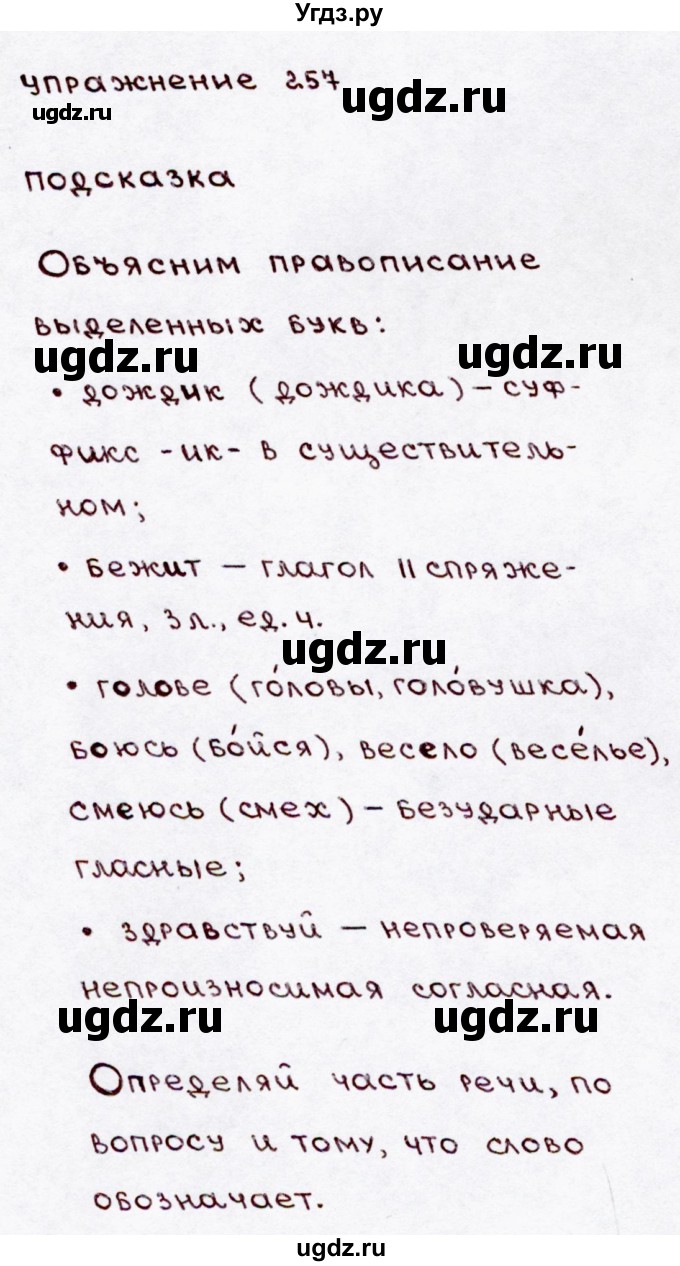 Угдз.ру
упражнение 257
ugdz.ru
ugdz.ru
подсказка
Объясним правописание
выделенных букв:
ugdz.ru
ugdz.ru
• дождик (дождика) – суф-
фикс -ик- в существитель-
ном;
• бежит – глагол II спряже-
ния, 3 л., ед. ч.
ugdz.ru
• голове (го́ловы, голо́вушка),
боюсь (бо́йся), весело (весе́лье),
смеюсь (смех) – безударные
гласные;
• здравствуй – непроверяемая
непроизносимая согласная.
ugdz.ru
ugdz.ru
Определяй часть речи, по
вопросу и тому, что слово
обозначает.
ugdz.ru